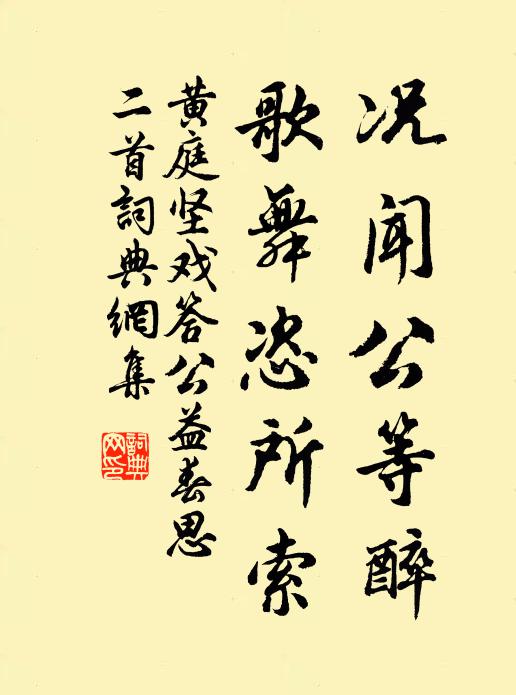 况闻公等醉
歌舞恣所索
黄庭坚戏答公益春思
二首詞典網集
詞典
网印